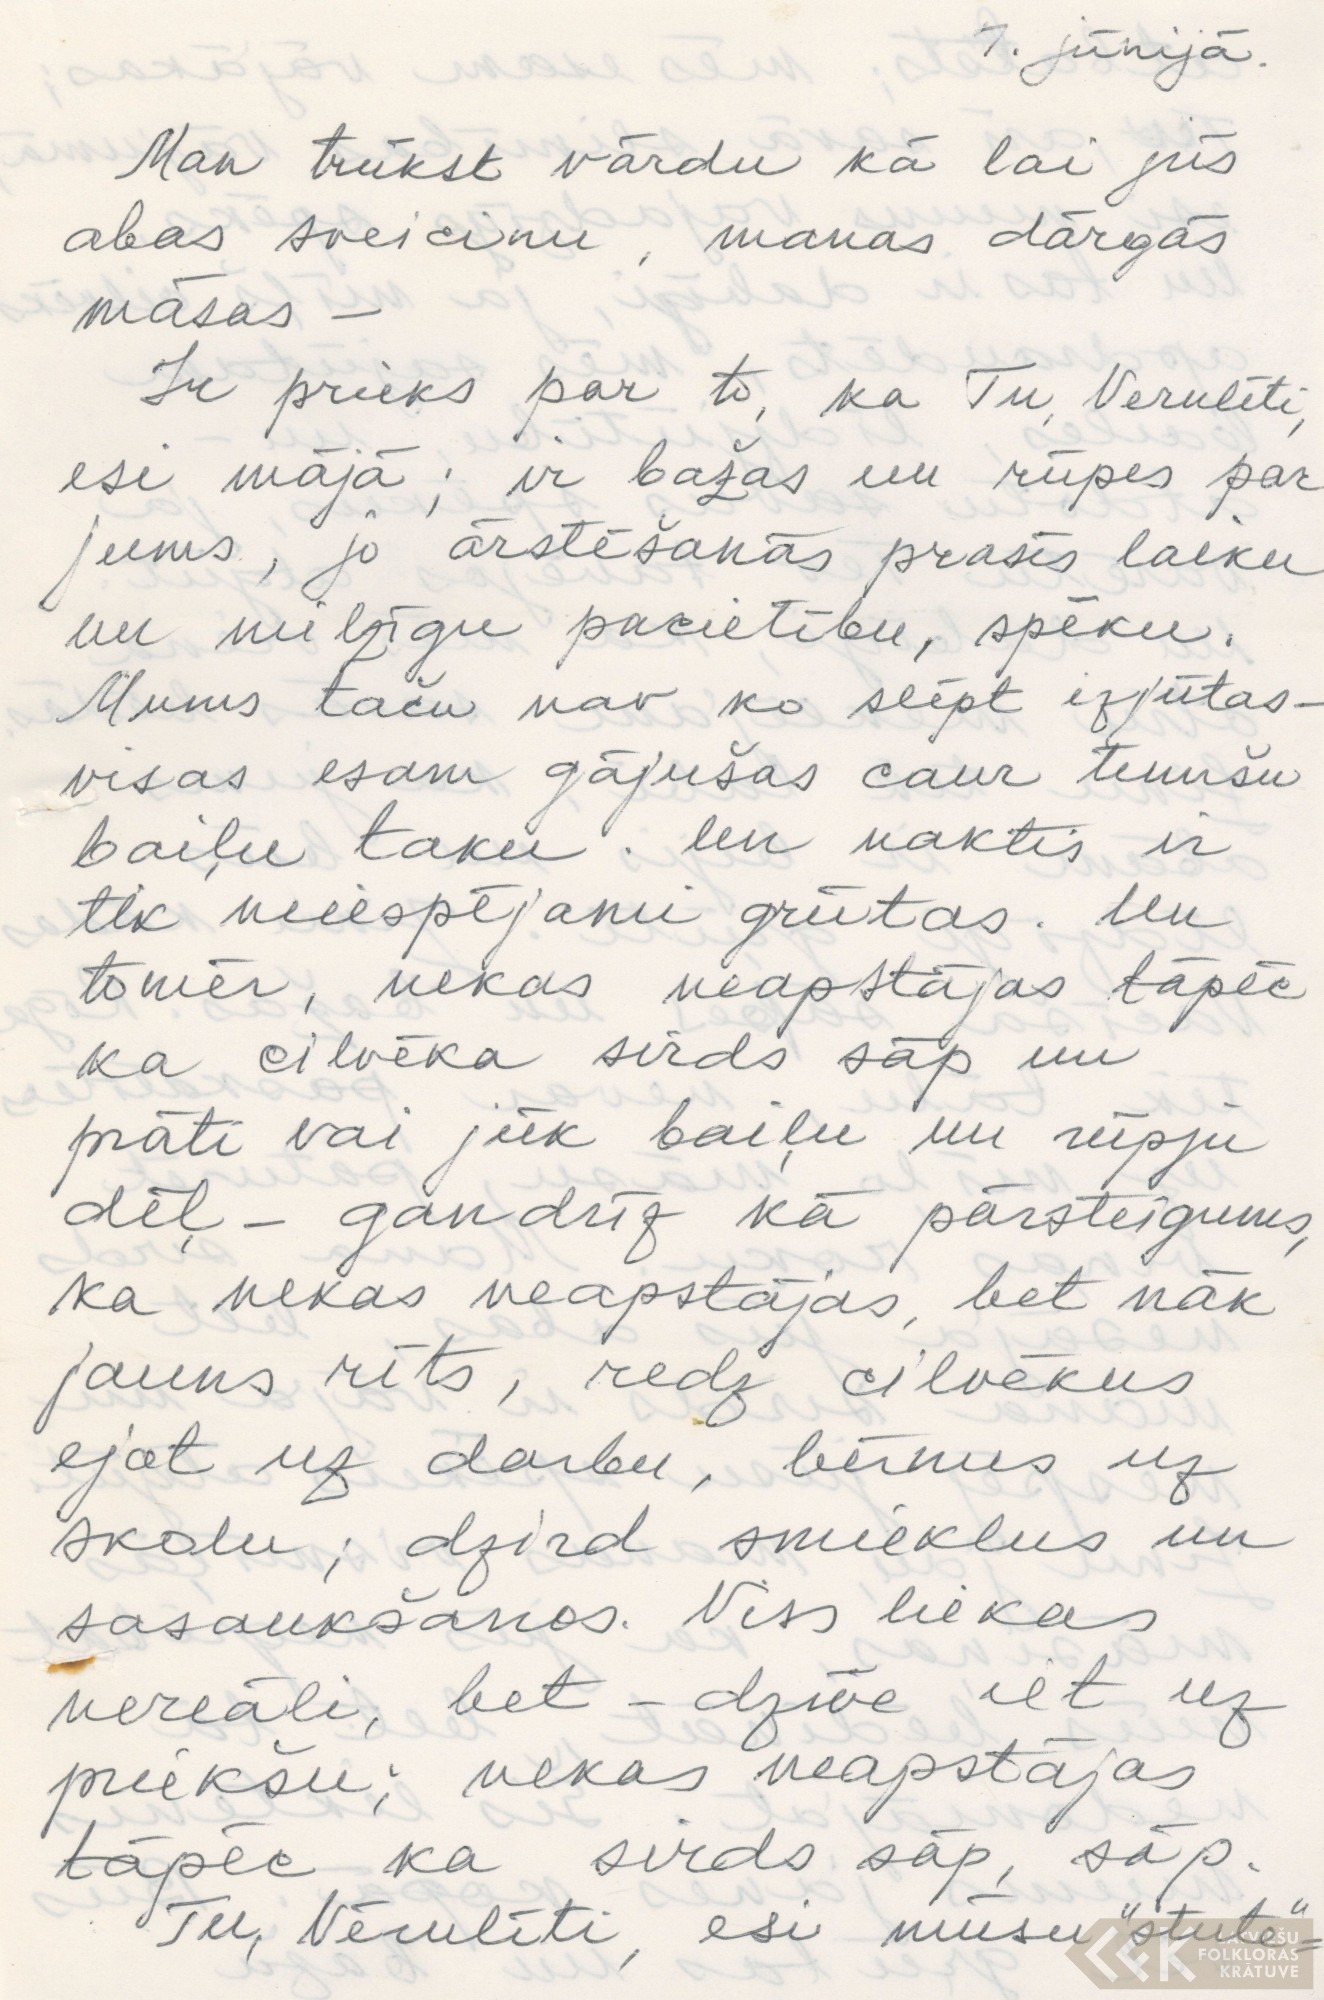 7. jūnijā.
Man trūkst vārdu kā lai jūs
abas sveicinu, manas dārgās
māsas –
Ir prieks par to, ka Tu, Verulīti,
esi mājā; ir bažas un rūpes par
jums, jo ārstēšanās prasīs laiku
un milzīgu pacietību, spēku.
Mums taču nav ko slēpt izjūtas –
visas esam gājušas caur tumšu
baiļu taku. Un naktis ir
tik neiespējami grūtas. Un
tomēr, nekas neapstājas tāpēc
ka cilvēka sirds sāp un
prāti vai jūk baiļu un rūpju
dēļ – gandrīz kā pārsteigums,
ka nekas neapstājas, bet nāk
jauns rīts, redz cilvēkus
ejot uz darbu, bērnus uz
skolu; dzird smieklus un
sasaukšanos. Viss liekas
nereāli, bet – dzīve iet uz
priekšu; nekas neapstājas
tāpēc ka sirds sāp, sāp.
Tu, Vērulīti, esi mūsu "stute" =
LATVIEŠU
FOLKLORAS
KRĀTUVE